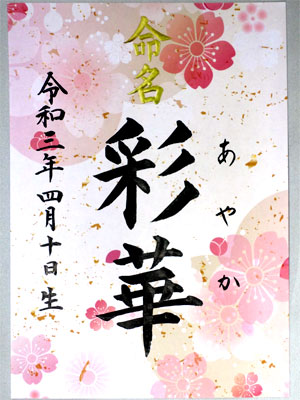 命名
あやか
彩華
令和三年四月十日生